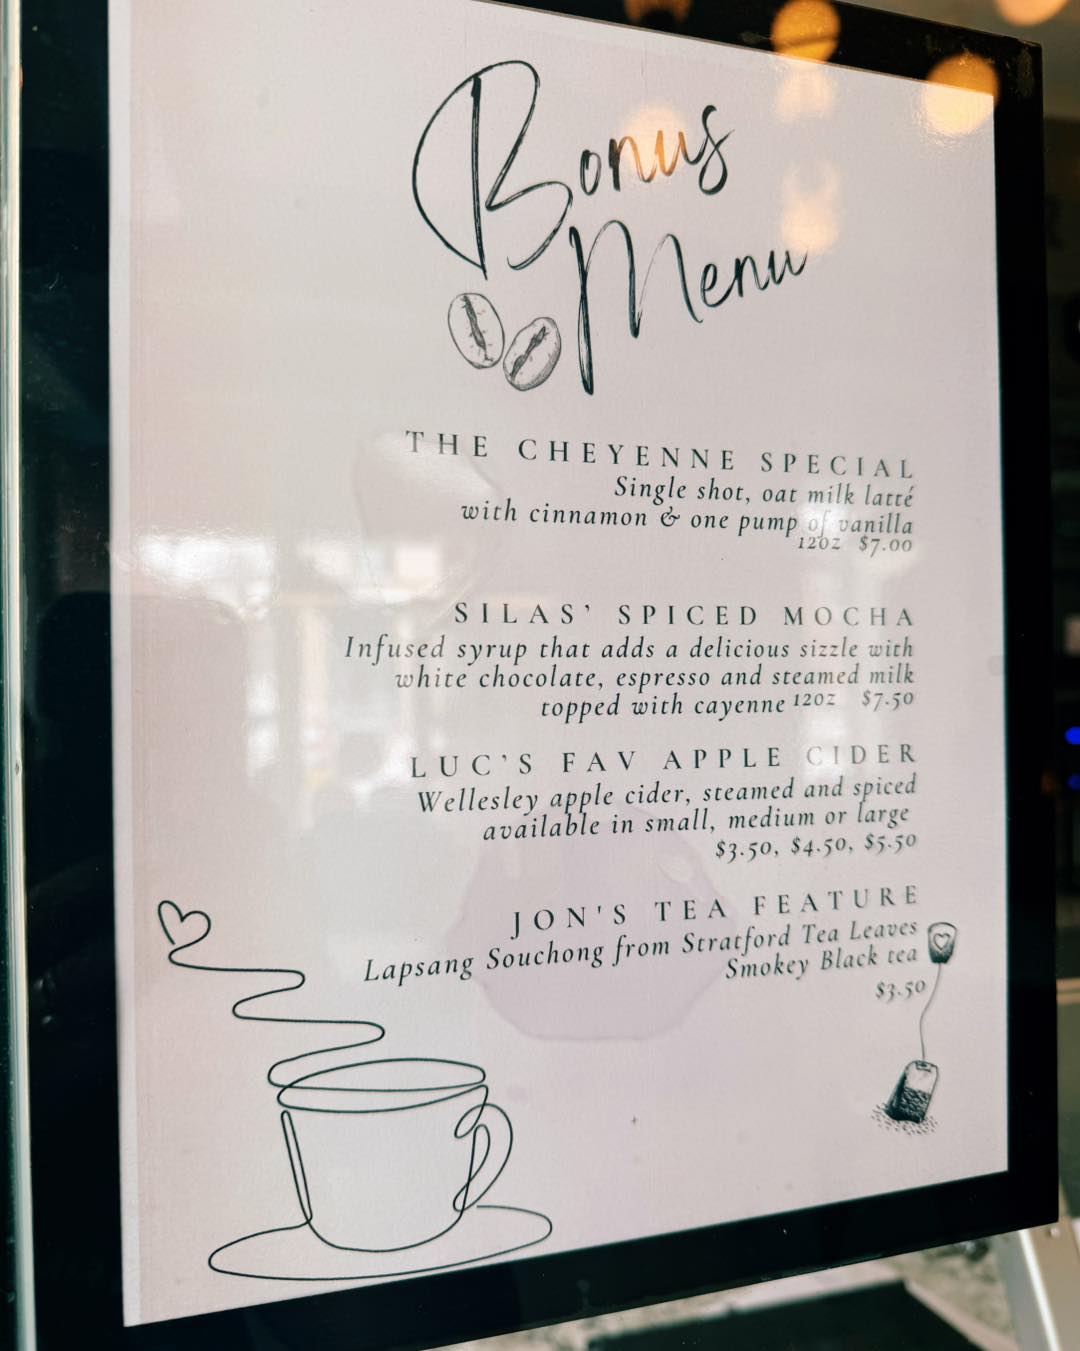 Bonus
Menu
THE CHEYENNE SPECIAL
Single shot, oat milk latté
with cinnamon & one pump of vanilla
12oz $7.00
SILAS' SPICED MOCHA
Infused syrup that adds a delicious sizzle with
white chocolate, espresso and steamed milk
topped with cayenne 12oz $7.50
LUC'S FAV APPLE CIDER
Wellesley apple cider, steamed and spiced
available in small, medium or large
$3.50, $4.50, $5.50
JON'S TEA FEATURE
Lapsang Souchong from Stratford Tea Leaves
Smokey Black tea
$3.50